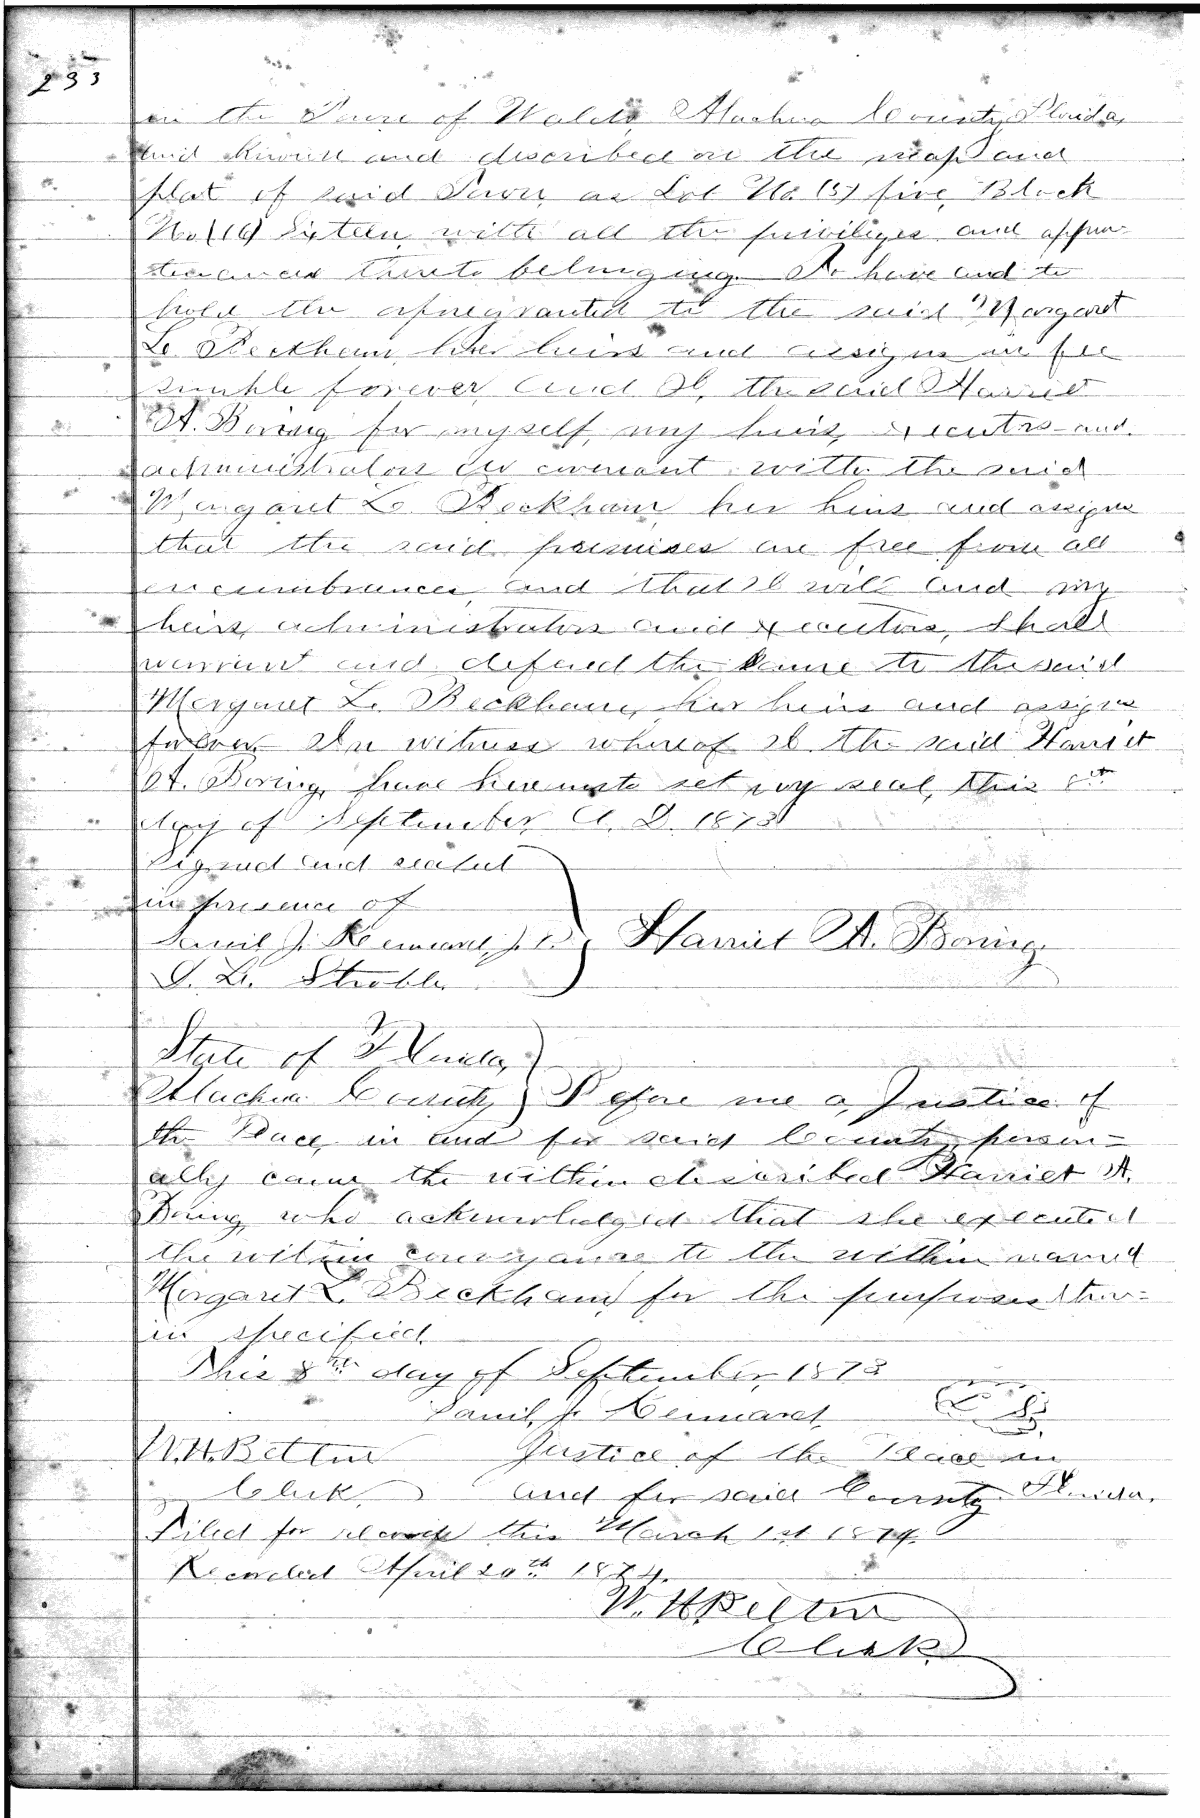 233
in the Town of Waldo, Alachua County, Florida,
and known and described on the map and
plat of said Town, as Lot No. (5) five, Block
No. (16) Sixteen, with all the priviliges and appur-
tenances thereto belonging. To have and to
hold the aforegranted to the said Margaret
L. Beckham, her heirs and assigns in fee
simple forever, and I, the said Harriet
A. Boring for myself, my heirs, executors and
administrators do covenant with the said
Margaret L. Beckham, her heirs and assigns
that the said premises are free from all
encumbrances, and that I will and my
heirs, administrators and executors, shall
warrant and defend the same to the said
Margaret L. Beckham, her heirs and assigns
forever. In witness whereof I the said Harriet
A. Boring, have hereunto set my seal, this 8th
day of September, A. D. 1873
Signed and sealed
in presence of
Samil J. Kennard, J. P. Harriet A. Boring
L. Strobble
State of Florida,
Alachua County Before me a, Justice of
the Peace, in and for said County, person=
ally came the within described Harriet A.
Boring, who acknowledged that she executed
the within conveyance to the within named
Margaret L. Beckham, for the purposes there=
in specified.
This 8th day of September, 1873
Samil. J. Kennard, L. S.
W. H. Belton Justice of the Peace in
Clerk, and for said County Florida.
Filed for record this March 1st 1874.
Recorded April 20th 1874.
W. H. Belton
Clerk.